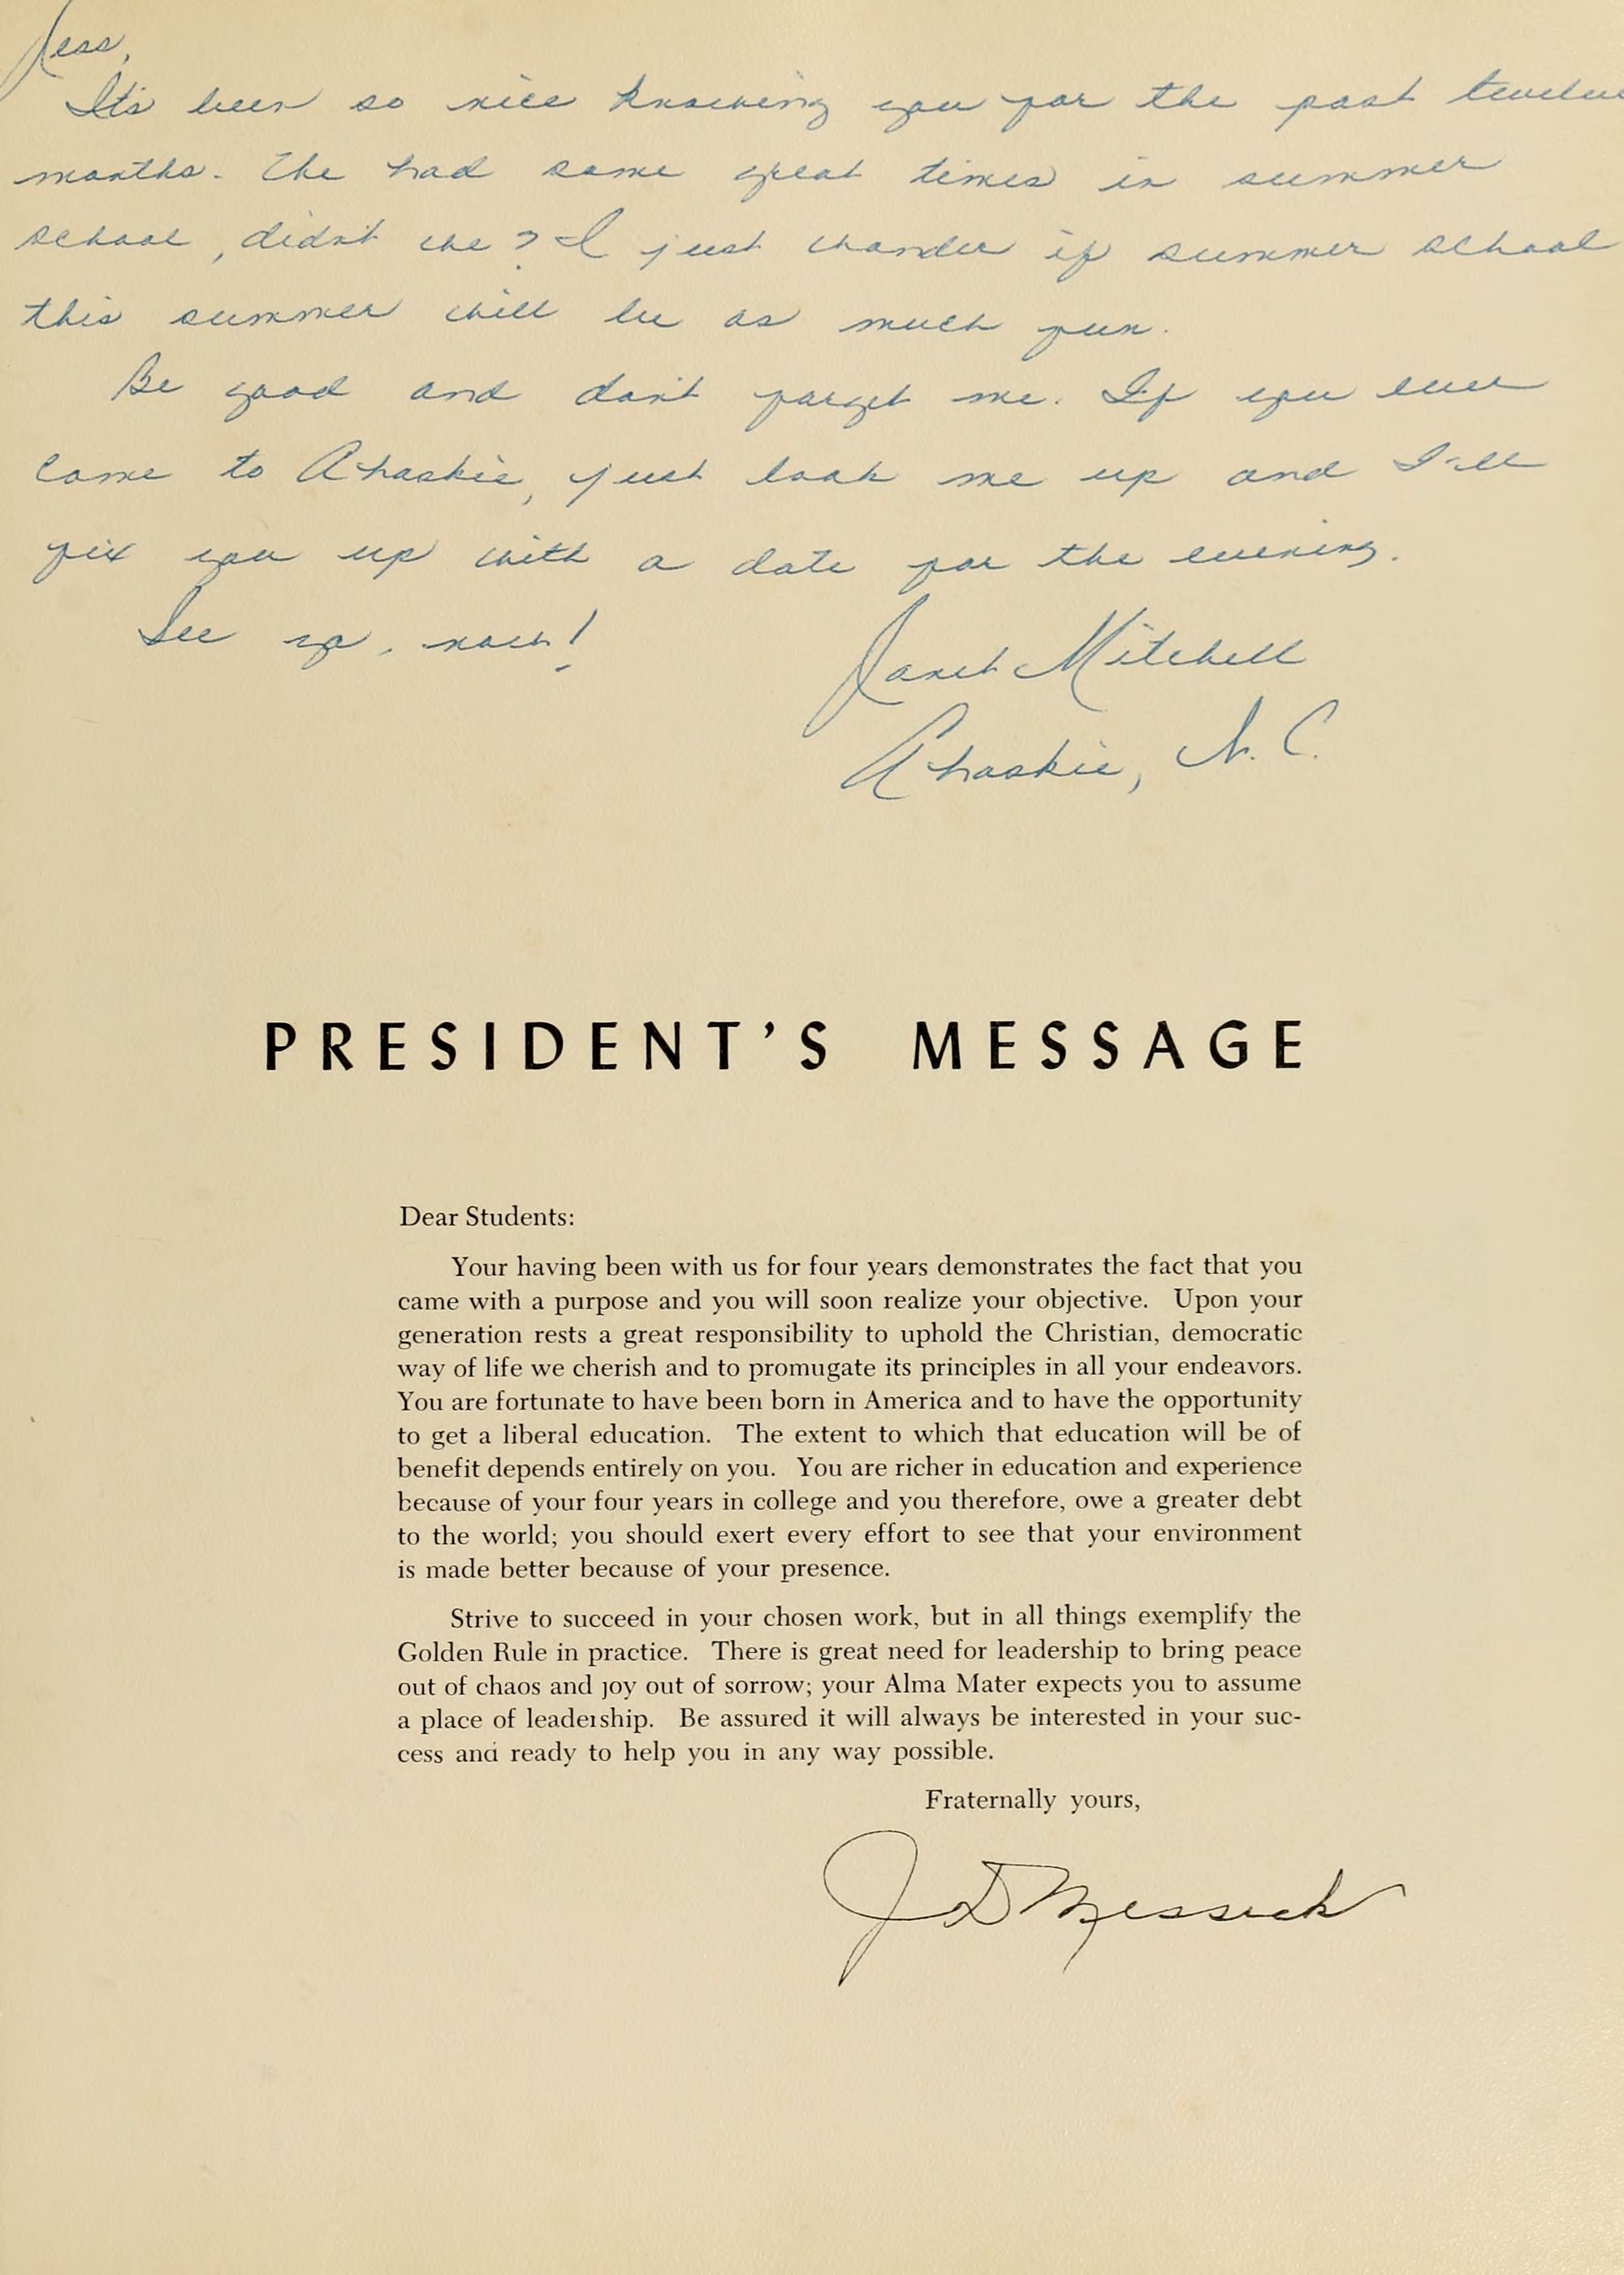 Jess,
It's been so nice knowing you for the past twelve
months. We had some great times in summer
school, didn't we? I just wonder if summer school
this summer will be as much fun.
Be good and don't forget me. If you ever
come to Ahoskie, just look me up and I'll
fix you up with a date for the evening.
See ya, now!
Janet Mitchell
Ahoskie, N.C.
PRESIDENT'S MESSAGE
Dear Students:
Your having been with us for four years demonstrates the fact that you
came with a purpose and you will soon realize your objective. Upon your
generation rests a great responsibility to uphold the Christian, democratic
way of life we cherish and to promugate its principles in all your endeavors.
You are fortunate to have been born in America and to have the opportunity
to get a liberal education. The extent to which that education will be of
benefit depends entirely on you. You are richer in education and experience
because of your four years in college and you therefore, owe a greater debt
to the world; you should exert every effort to see that your environment
is made better because of your presence.
Strive to succeed in your chosen work, but in all things exemplify the
Golden Rule in practice. There is great need for leadership to bring peace
out of chaos and joy out of sorrow; your Alma Mater expects you to assume
a place of leadership. Be assured it will always be interested in your suc-
cess and ready to help you in any way possible.
Fraternally yours,
J D Messick